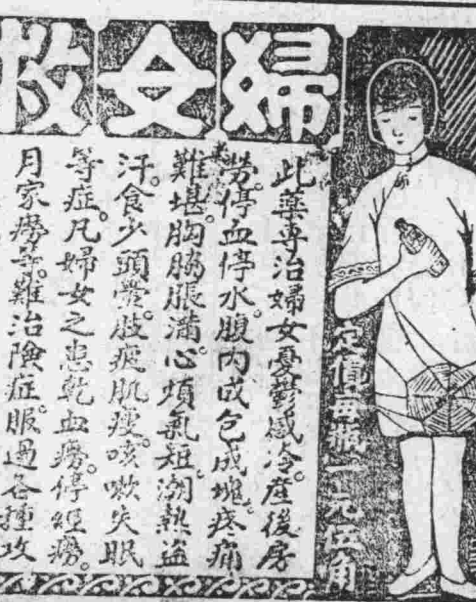 婦女救
定價每瓶一元伍角
此藥專治婦女憂鬱感冷。產後房
勞。停血停水。腹內成包成塊。疼痛
難堪。胸脇脹滿。心煩氣短。潮熱盜
汗。食少頭暈。肢疲肌瘦。咳嗽失眠
等症。凡婦女之患乾血癆。停經癆。
月家癆等。難治險症。服過各種攻